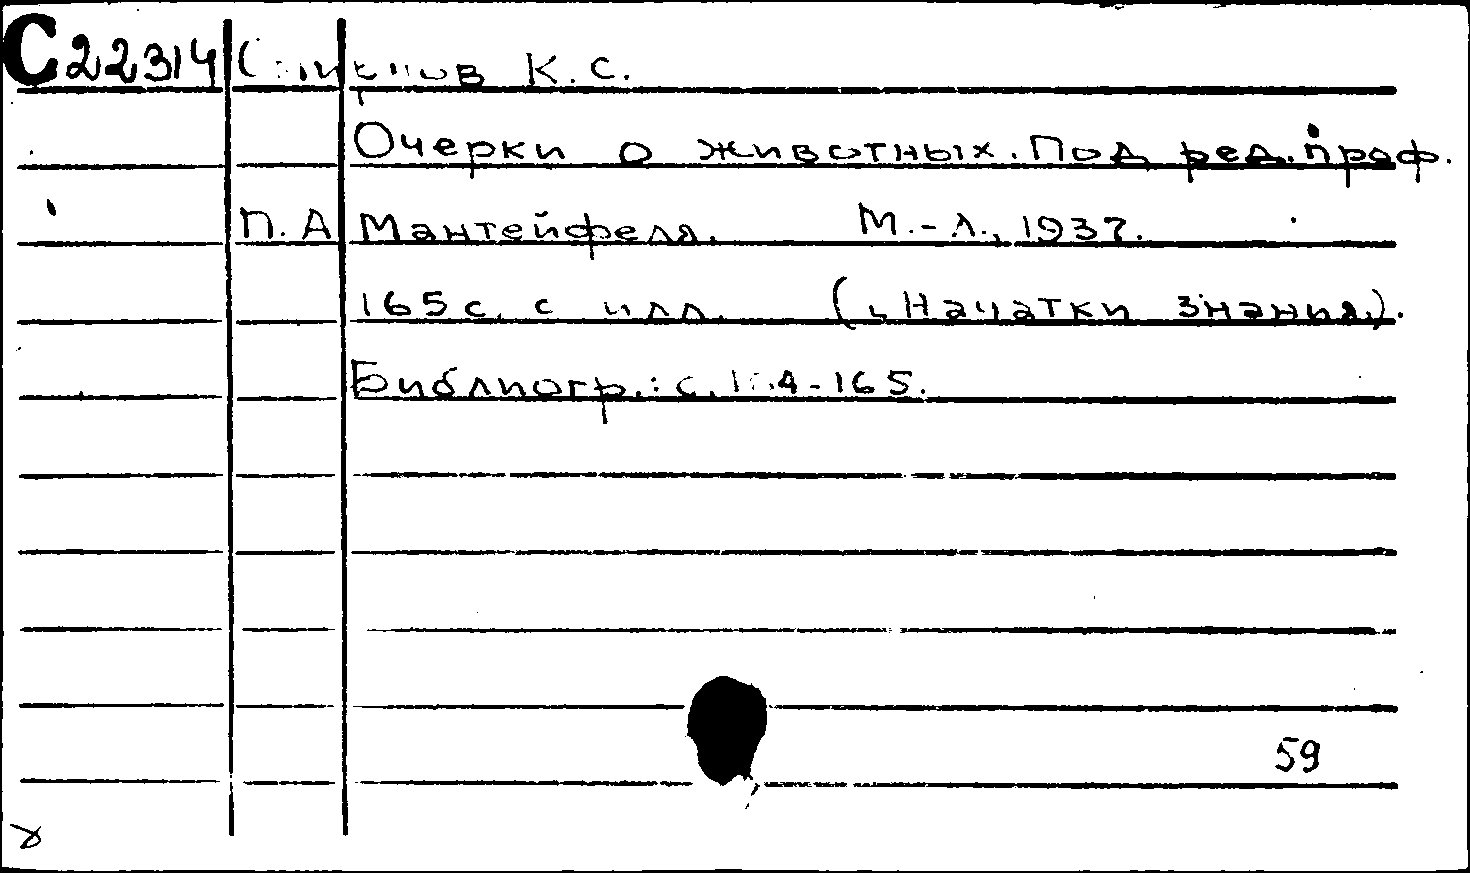 С22314 К. С.
Очерки о животных. Под ред. проф.
П. А Мантейфеля. М.-Л., 1937.
165 с. с илл. („Начатки знания.).
Библиогр.: с. 164-165.
59